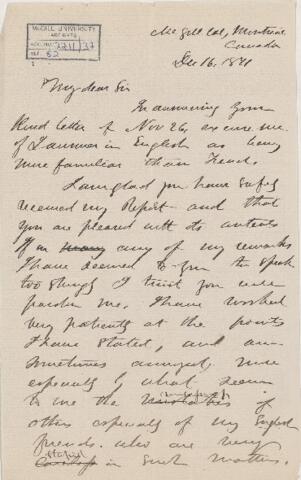 McGILL UNIVERSITY
ARCHIVES
ACC. NO. 2211/37
REF. 53
McGill Col, Montreal
Canada
Dec 16, 1871
My dear Sir
In answering your
kind letter of Nov 26, excuse me
if I answer in English as being
more familiar than French.
I am glad you have safely
received my Report and that
you are pleased with its contents
If in many any of my remarks
I have seemed to you to speak
too strongly I trust you will
pardon me. I have worked
very patiently at the points
I have stated, and am
sometimes annoyed, more
especially by what seem
to me the of
others especially of my English
friends. who are very
stupid
in such matters.